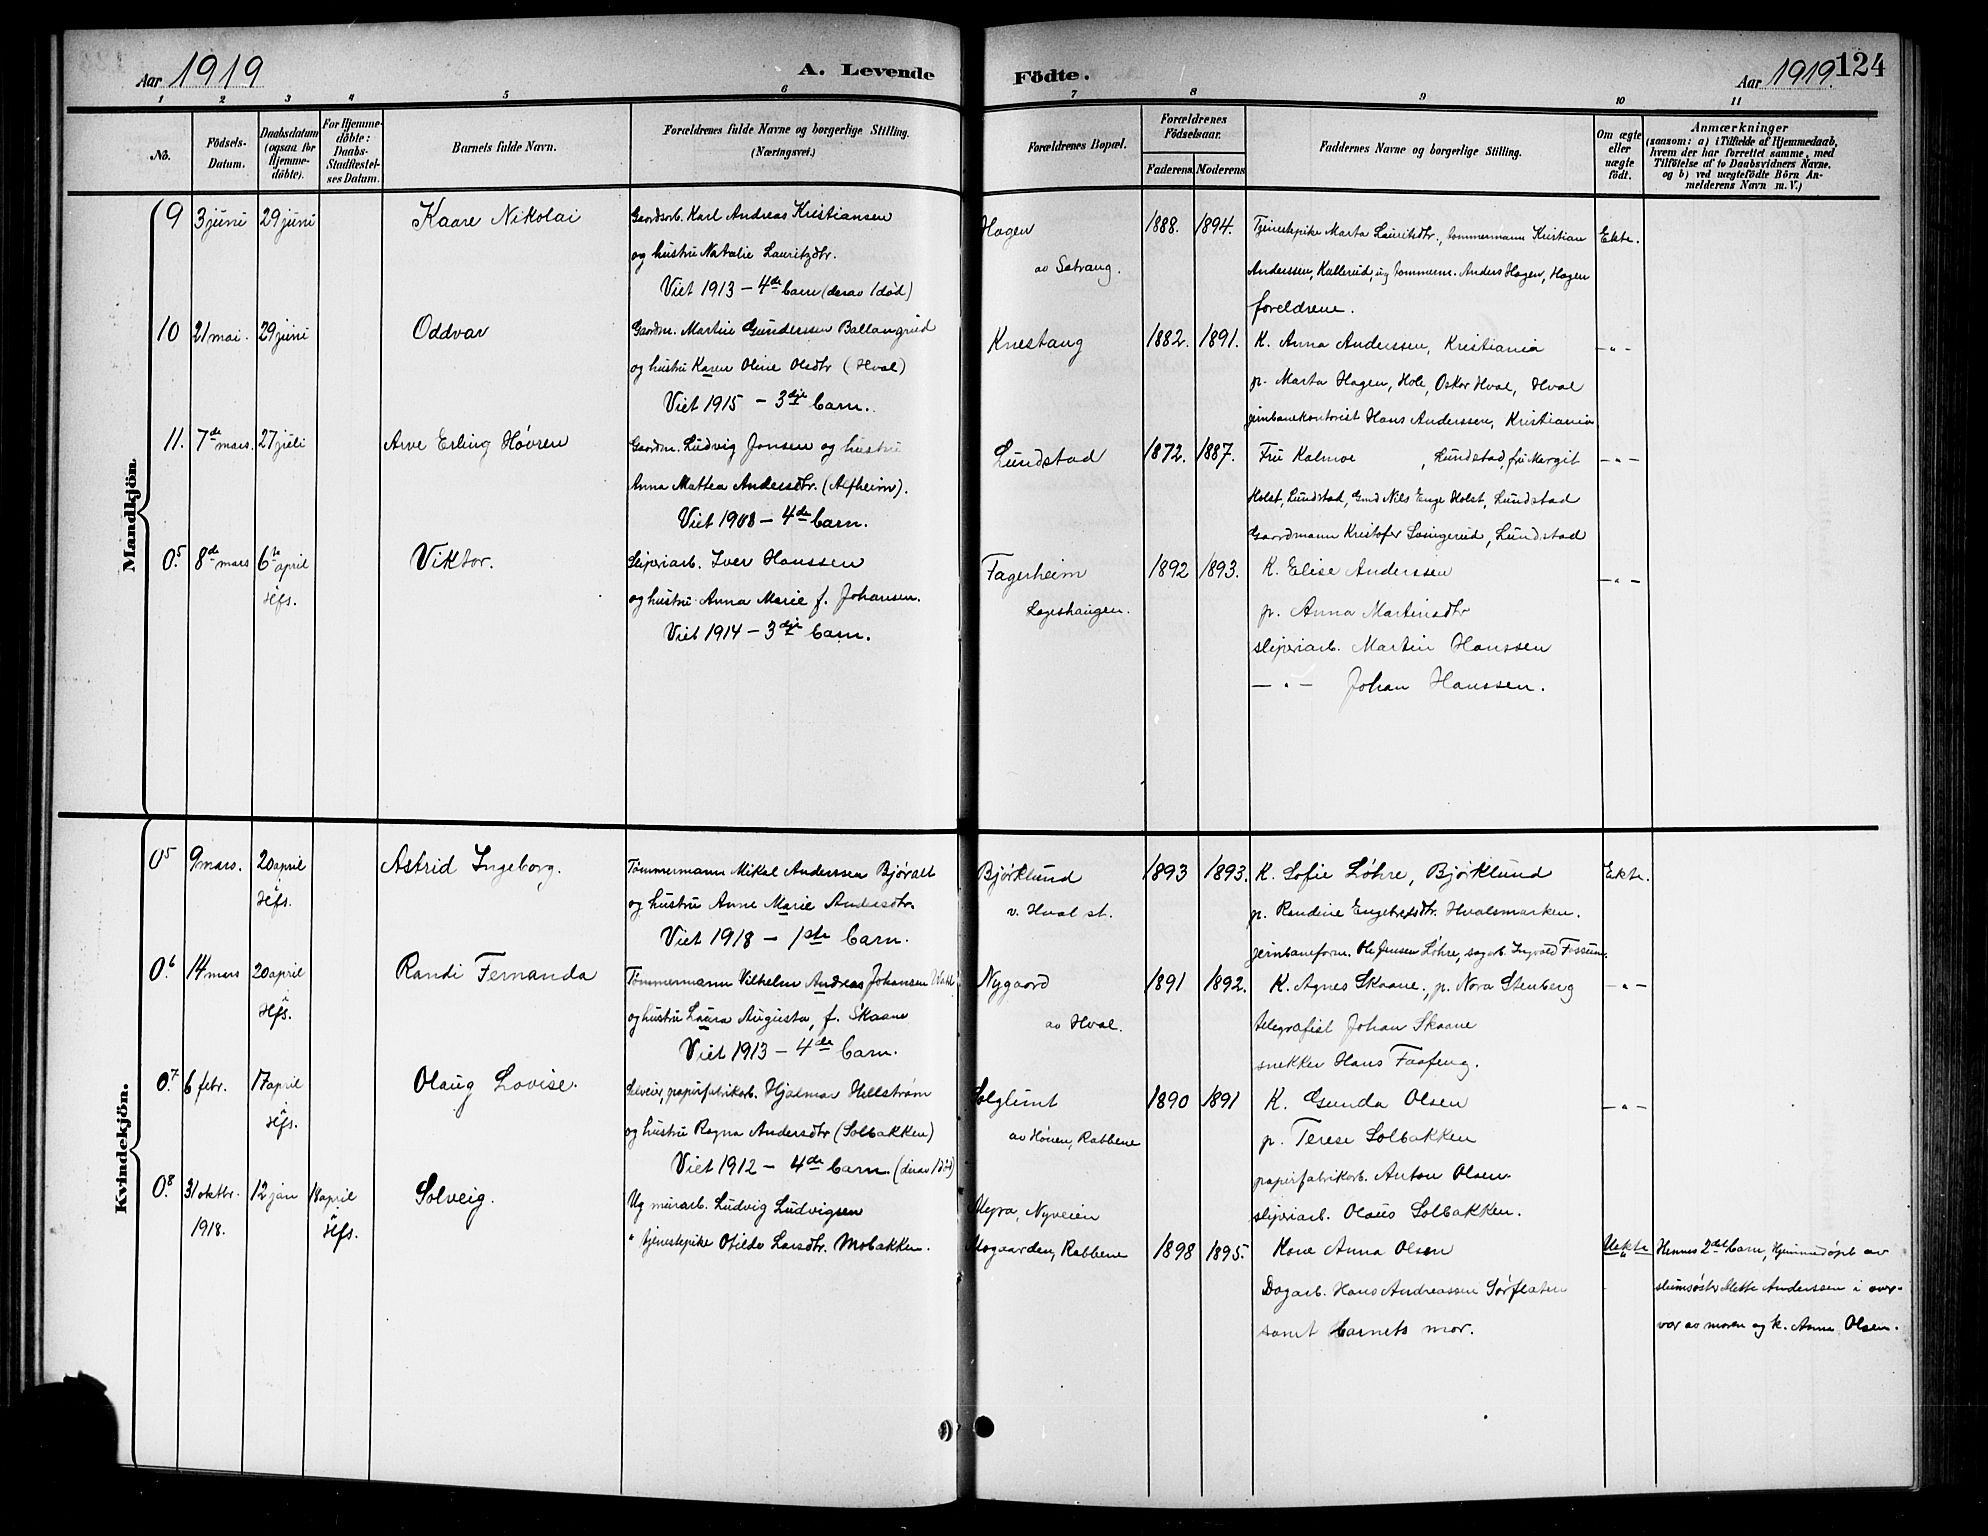 Aar 1919 A. Levende Födte. Aar 1919. 124
1 2 3 4 5 6 7 8 9 10 11
No.
Födsels-Datum.
Daabsdatum (ogsaa for Hjemme-döbte).
For Hjemme-döbte: Daabs-Stadfæstel-ses Datum.
Barnets fulde Navn.
Forældrenes fulde Navne og borgerlige Stilling.
(Næringsvei.)
Forældrenes Bopæl.
Forældrenes Födselsaar.
Faderens Moderens
Faddernes Navne og borgerlige Stilling.
Om ægte eller uægte födt.
Anmærkninger
(saasom: a) i Tilfælde af Hjemmedaab,
hvem der har forrettet samme, med
Tilföielse af to Daabsvidners Navne.
og b) ved uægtefödte Börn An-
melderens Navn m. V.)
Mandkjön.
9 3 juni 29 juni Kaare Nikolai Gaardsarb. Karl Andreas Kristiansen Hagen 1888. 1894. Tjenestepike Marta Lauritsdtr., tømmermann Kristian Ekte.
og hustru Natalie Lauritzdtr. av Setrang. Anderssen, Kullerud, og tømmerm. Anders Hagen, Hagen
Viet 1913 – 4de barn (derav 1 død) foreldrene.
10 21 mai. 29 juni Oddvar Gaardm. Martin Gunderssen Ballangrud Knestang 1882. 1891. K. Anna Anderssen, Kristiania – " –
og hustru Karen Oline Olsdtr (Hval) p. Marta Hagen, Hole, Oskar Hval, Hval
Viet 1915 – 3dje barn. jernbanekontorist Hans Anderssen, Kristiania
11. 7de mars. 27 juli Arve Erling Høvren Gaardm. Ludvig Jonsen og hustru Lundstad 1872. 1887. Fru Kalmoe , Lundstad, fru Margit – " –
Anna Mattea Andersdtr. (Alfheim). Holst, Lundstad, Gmd Nils Enge Holst, Lundstad
Viet 1908 – 4de barn. Gaardmann Kristofer Songerud, Lundstad
0.5 8de mars 6te april Viktor. Sliperiarb. Iver Hanssen Fagerheim 1892 1893. K. Elise Anderssen – " –
Hfs. og hustru Anna Marie f. Johansen. Lageshaugen. p. Anna Martinsdtr
Viet 1914 – 3dje barn. sliperiarb. Martin Hanssen
– " – Johan Hanssen.
Kvindekjön.
05 9 mars. 20 april Astrid Ingeborg. Tømmermann Mikal Anderssen Bjøralt Bjørklund 1893 1893. K. Sofie Løhre, Bjørklund Ekte.
Hfs. og hustru Anne Marie Andersdtr. v. Hval st. p. Randine Engebretsdtr. Hvalsmarken.
Viet 1918 – 1ste barn. jernbaneform. Ole Jensen Løhre, sagarb. Ingvald Fossum.
0.6 14 mars 20 april Randi Fernanda Tømmermann Vilhelm Andreas Johansen Nygaard 1891 1892. K. Agnes Skaane., p. Nora Stenberg – " –
Hfs. og hustru Laura Augusta, f. Skaane av Hval. telegrafist Johan Skaane
Viet 1913 – 4de barn. snekker Hans Faafeng.
0.7 6 febr. 17 april Olaug Lovise. Selveier, papirfabrikarb. Hjalmar Hellstrøm Solglimt 1890 1891 K. Gunda Olsen – " –
Hfs. og hustru Ragna Andersdtr (Solbakken) av Hønen, Rabbene p. Terese Solbakken
Viet 1912 – 4de barn. (derav 1 død) papirfabrikarb. Anton Olsen.
0.8 31 oktbr. 12 jan 18 april Solveig. Ug murarb. Ludvig Ludvigsen Myra, Nyveien sliperiarb. Olaus Solbakken.
1918. Hfs. " tjenestepike Otilde Larsdtr. Mobakken. Mogaarden, Rabbene 1898 1895. Kone Anna Olsen Uekte Hennes 2det barn, Hjemmedøpt av
Dagarb. Hans Andreassen Sørflaten slumsøster Mette Anderssen i over-
samt barnets mor. vær av moren og k. Anna Olsen.